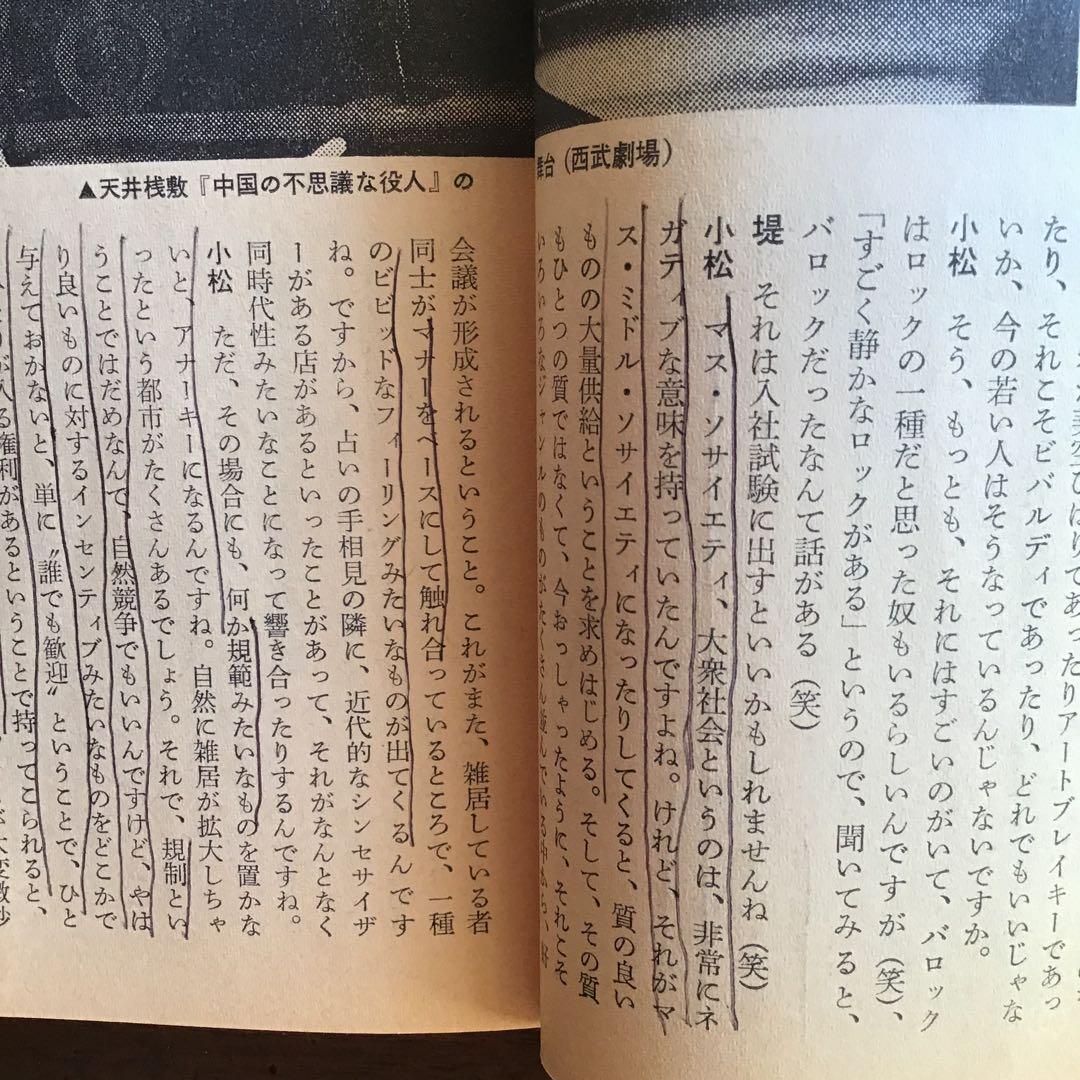 舞台（西武劇場）
たり、それこそビバルディであったり、どれでもいいじゃな
いか、今の若い人はそうなっているんじゃないですか。
小松　そう、もっとも、それにはすごいのがいて、バロック
はロックの一種だと思った奴もいるらしいんですが（笑）、
「すごく静かなロックがある」というので、聞いてみると、
バロックだったなんて話がある（笑）
堤　それは入社試験に出すといいかもしれませんね（笑）
小松　マス・ソサイエティ、大衆社会というのは、非常にネ
ガティブな意味を持っていたんですよね。けれど、それがマ
ス・ミドル・ソサイエティになったりしてくると、質の良い
ものの大量供給ということを求めはじめる。そして、その質
もひとつの質ではなくて、今おっしゃったように、それこそ
いろいろなジャンルのものがたくさん並んでいる中から、好
▲天井桟敷『中国の不思議な役人』の
会議が形成されるということ。これがまた、雑居している者
同士がマナーをベースにして触れ合っているところで、一種
のビビッドなフィーリングみたいなものが出てくるんです
ね。ですから、占いの手相見の隣に、近代的なシンセサイザ
ーがある店があるといったことがあって、それがなんとなく
同時代性みたいなことになって響き合ったりするんですね。
小松　ただ、その場合にも、何か規範みたいなものを置かな
いと、アナーキーになるんですね。自然に雑居が拡大しちゃ
ったという都市がたくさんあるでしょう。それで、規制とい
うことではだめなんで、自然競争でもいいんですけど、やは
り良いものに対するインセンティブみたいなものをどこかで
与えておかないと、単に〝誰でも歓迎〟ということで、ひと
入る権利があるということで持ってこられると、